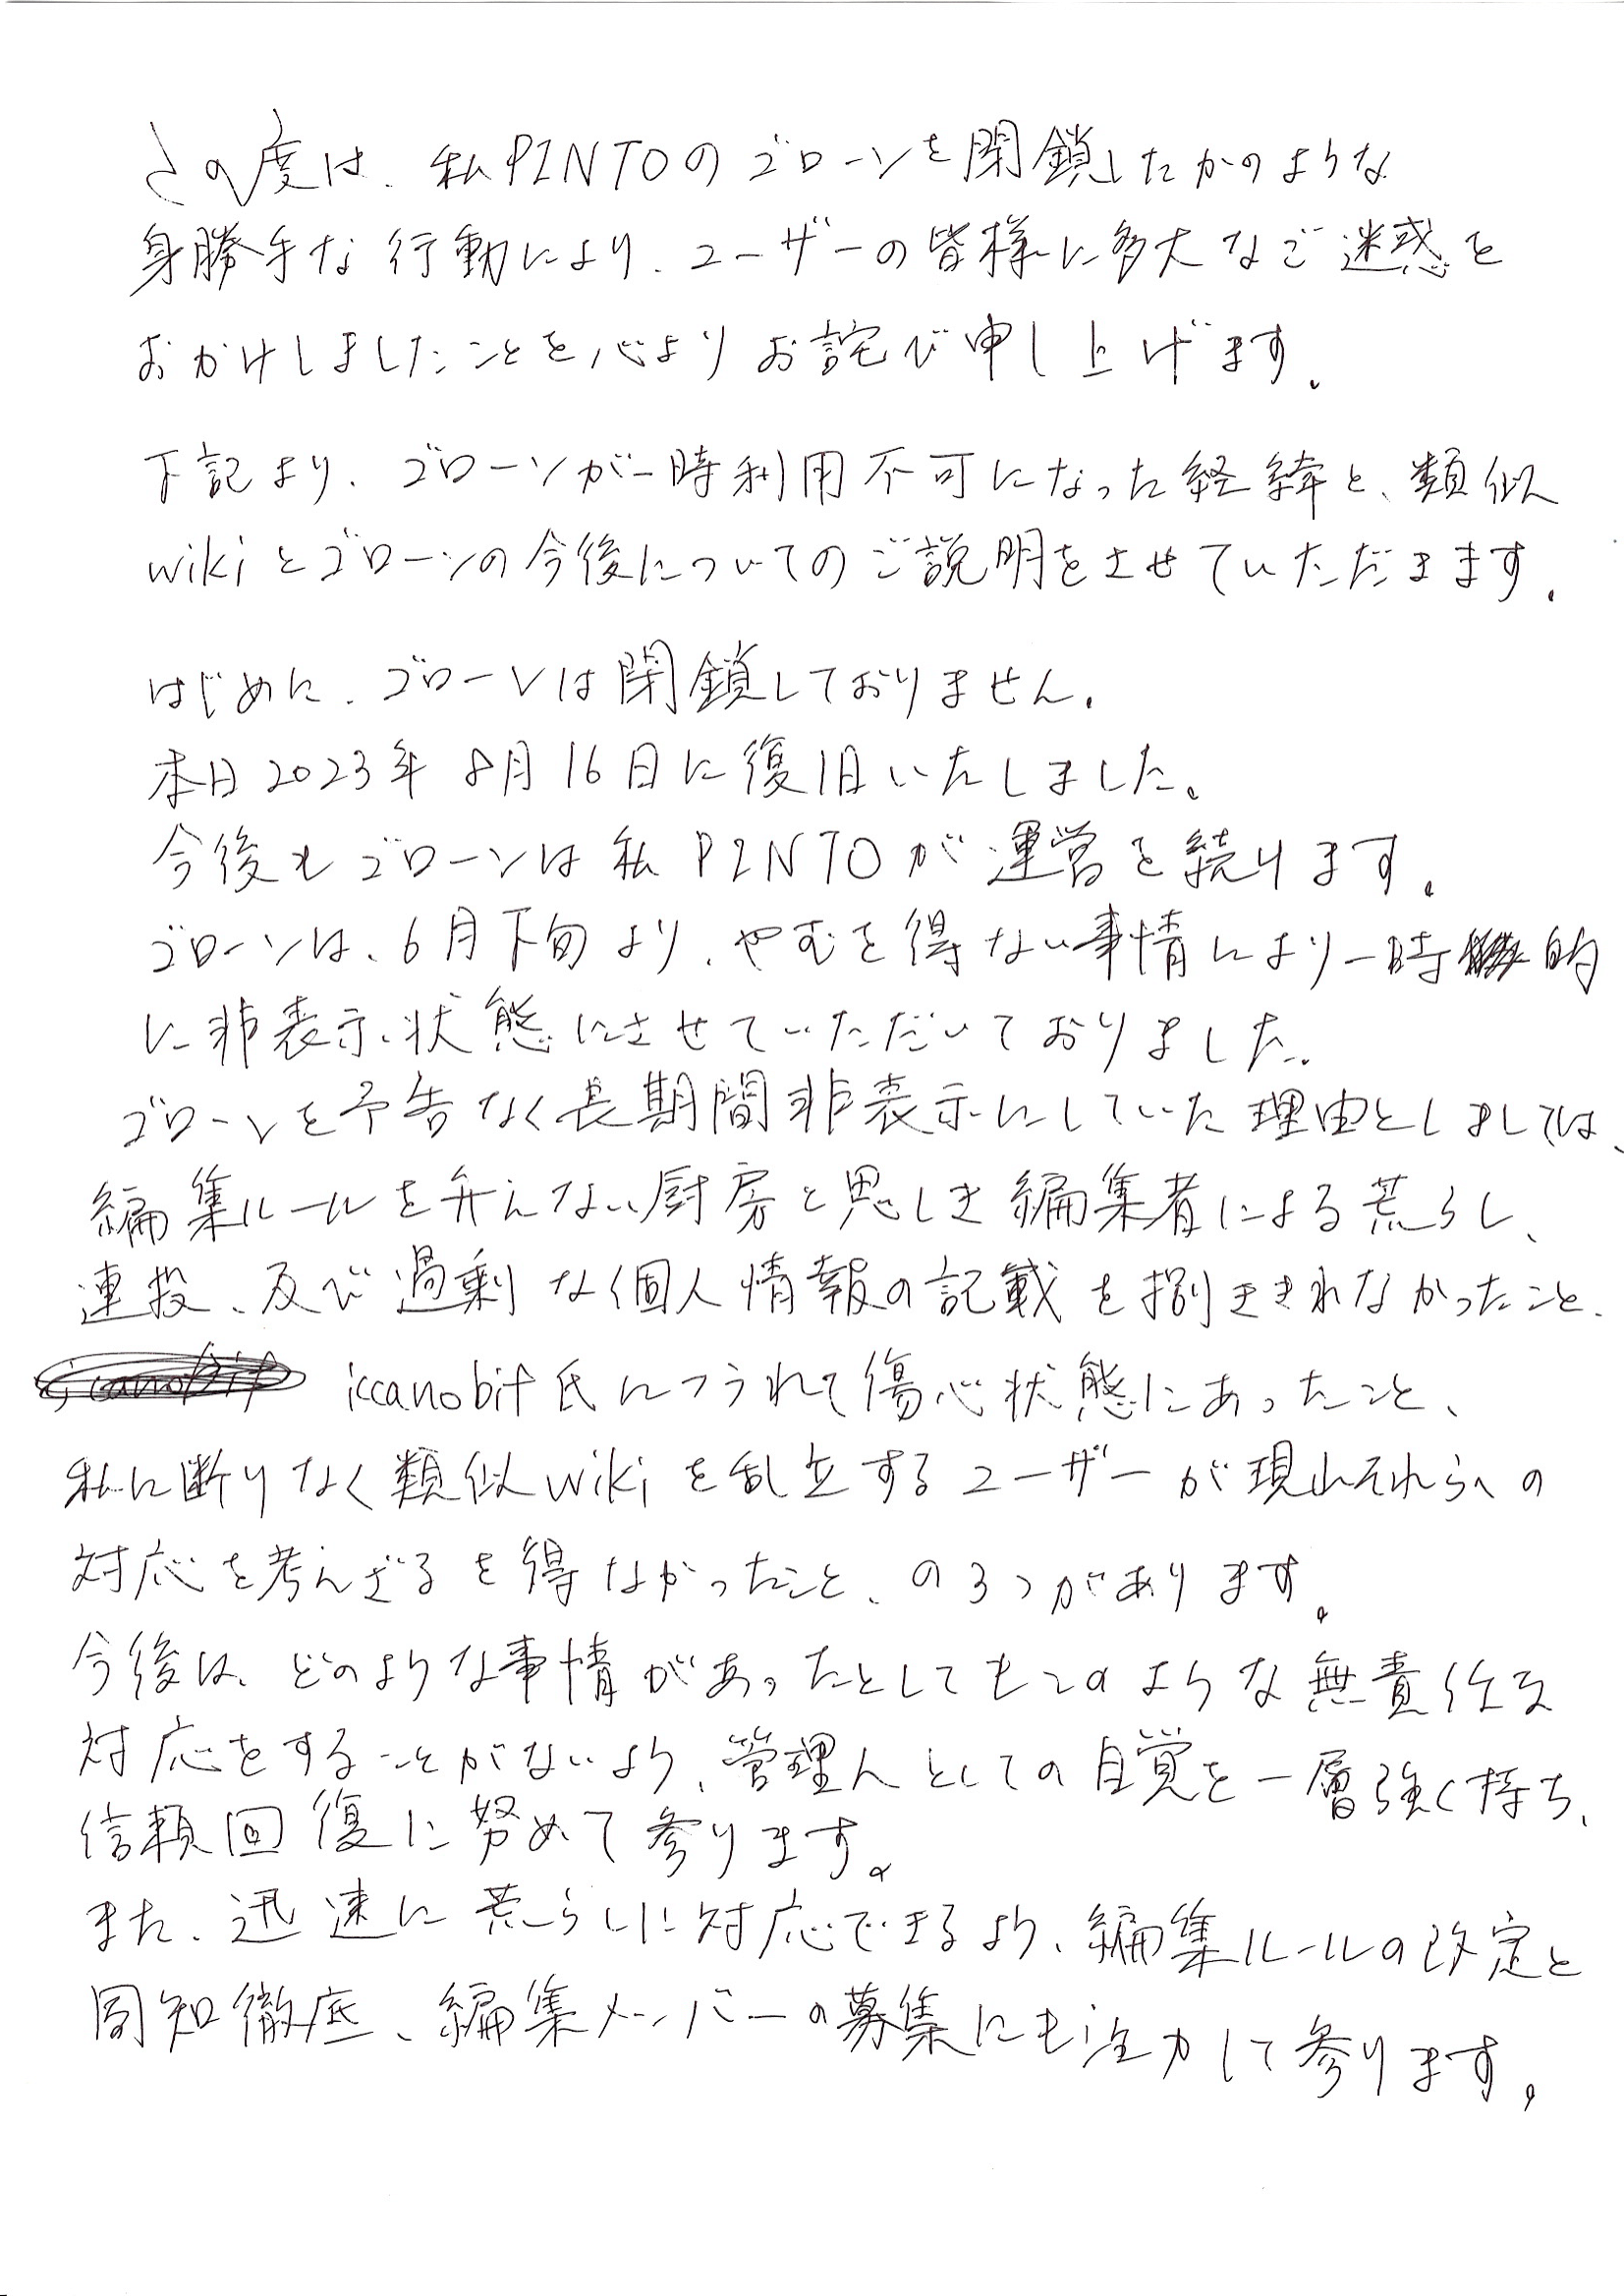 この度は、私PINTOのゴローンを閉鎖したかのような
身勝手な行動により、ユーザーの皆様に多大なご迷惑を
おかけしましたことを心よりお詫び申し上げます。
下記より、ゴローンが一時利用不可になった経緯と、類似
wikiとゴローンの今後についてのご説明をさせていただきます。
はじめに、ゴローンは閉鎖しておりません。
本日2023年8月16日に復旧いたしました。
今後もゴローンは私PINTOが運営を続けます。
ゴローンは、6月下旬より、やむを得ない事情により一時的
に非表示状態にさせていただいておりました。
ゴローンを予告なく長期間非表示にしていた理由としましては、
編集ルールを弁えない厨房と思しき編集者による荒らし、
連投、及び過剰な個人情報の記載を捌ききれなかったこと、
iccanobif iccanobif氏にフラれて傷心状態にあったこと、
私に断りなく類似wikiを乱立するユーザーが現れそれらへの
対応を考えざるを得なかったこと、の3つがあります。
今後は、どのような事情があったとしてもこのような無責任な
対応をすることがないよう、管理人としての自覚を一層強く持ち、
信頼回復に努めて参ります。
また、迅速に荒らしに対応できるよう、編集ルールの改定と
周知徹底、編集メンバーの募集にも注力して参ります。